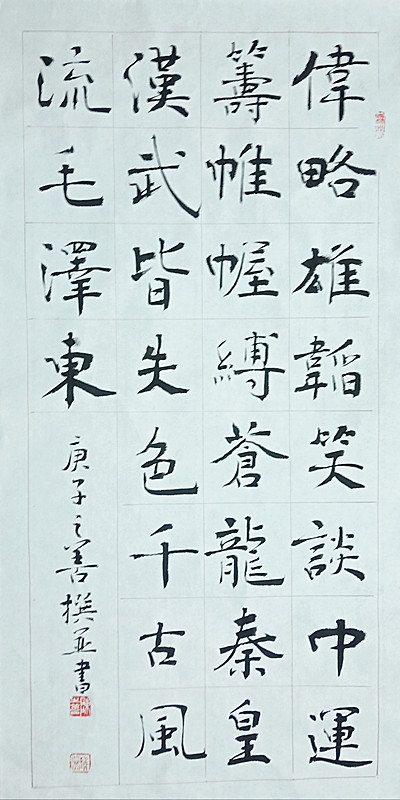 偉略雄韜笑談中運
籌帷幄縛蒼龍秦皇
漢武皆失色千古風
流毛澤東
庚子之善撰並書